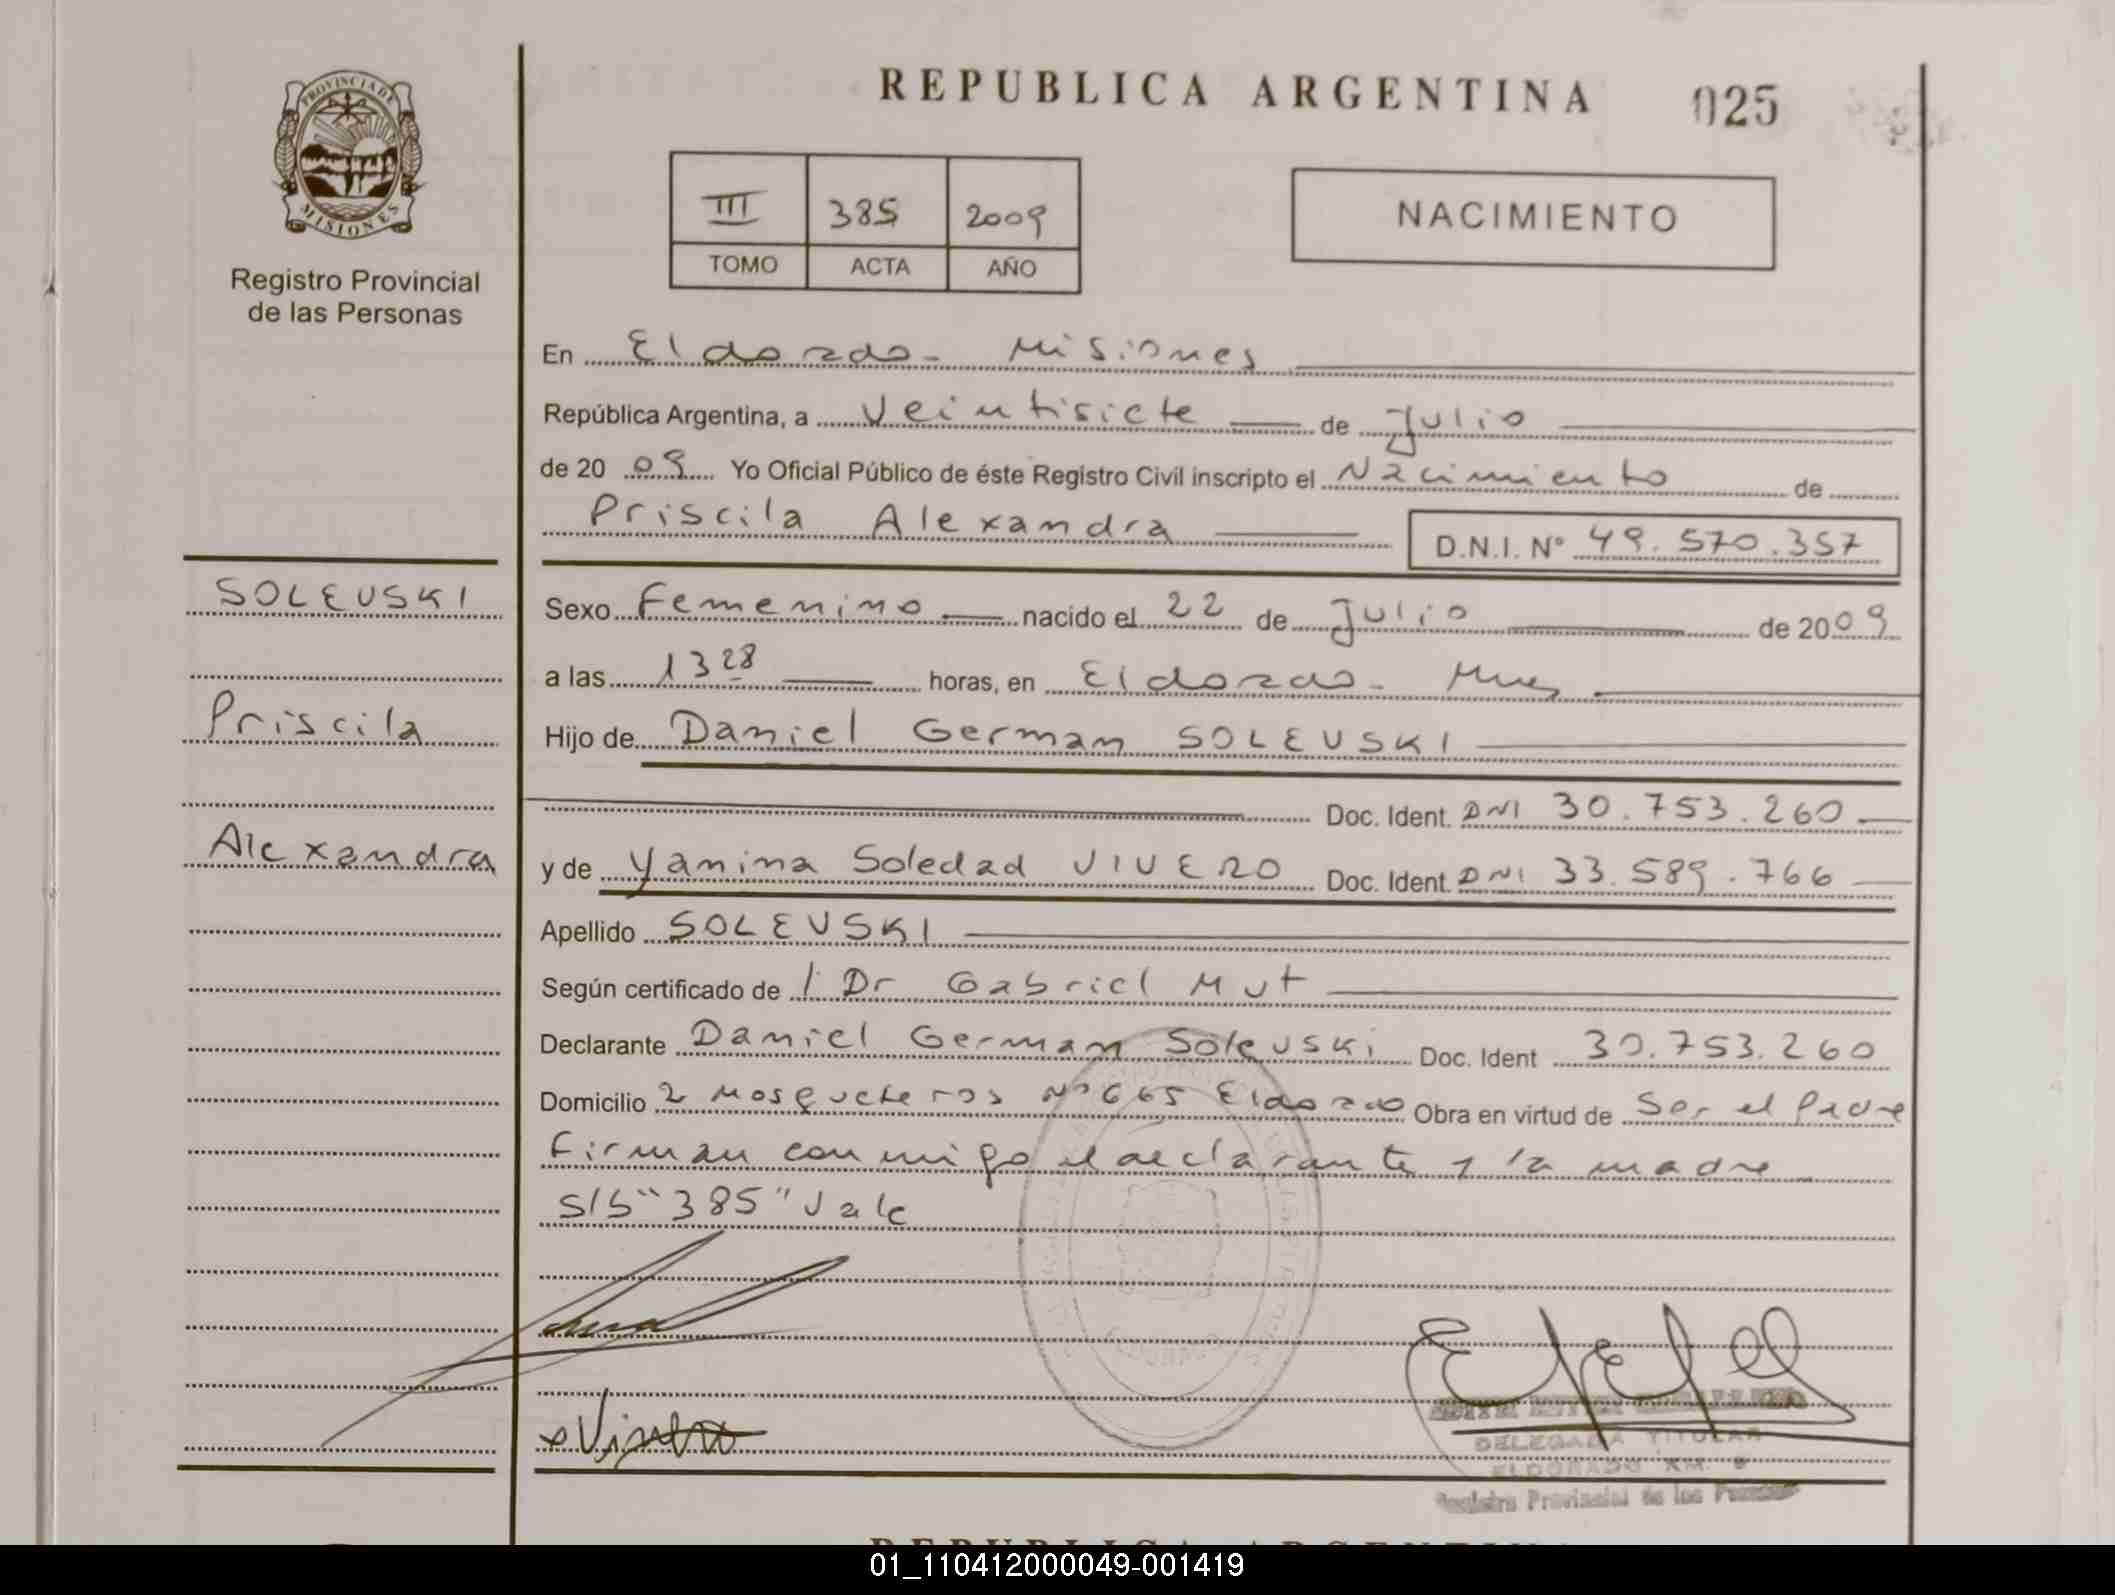 REPUBLICA ARGENTINA 025
PROVINCIA DE
MISIONES
Registro Provincial
de las Personas
III 385 2009
TOMO ACTA AÑO
NACIMIENTO
En Eldorado - Misiones
República Argentina, a Veintisiete de Julio
de 20 09 Yo Oficial Público de éste Registro Civil inscripto el Nacimiento de
Priscila Alexandra D.N.I. Nº 49.570.357
SOLEVSKI
Priscila
Alexandra
Sexo Femenino nacido el 22 de Julio de 2009
a las 13 28 horas, en Eldorado - Mnes
Hijo de Daniel German SOLEVSKI
Doc. Ident. DNI 30.753.260
y de Yanina Soledad VIVERO Doc. Ident. DNI 33.589.766
Apellido SOLEVSKI
Según certificado de / Dr Gabriel Mut
Declarante Daniel German Solevski Doc. Ident 30.753.260
Domicilio 2 Mosqueteros Nº 665 Eldorado Obra en virtud de Ser el Padre
Firman conmigo el declarante y la madre
S/b "385" Vale
DELEGADA TITULAR
ELDORADO KM. 9
Registro Provincial de las Personas
REPUBLICA ARGENTINA
01_110412000049-001419